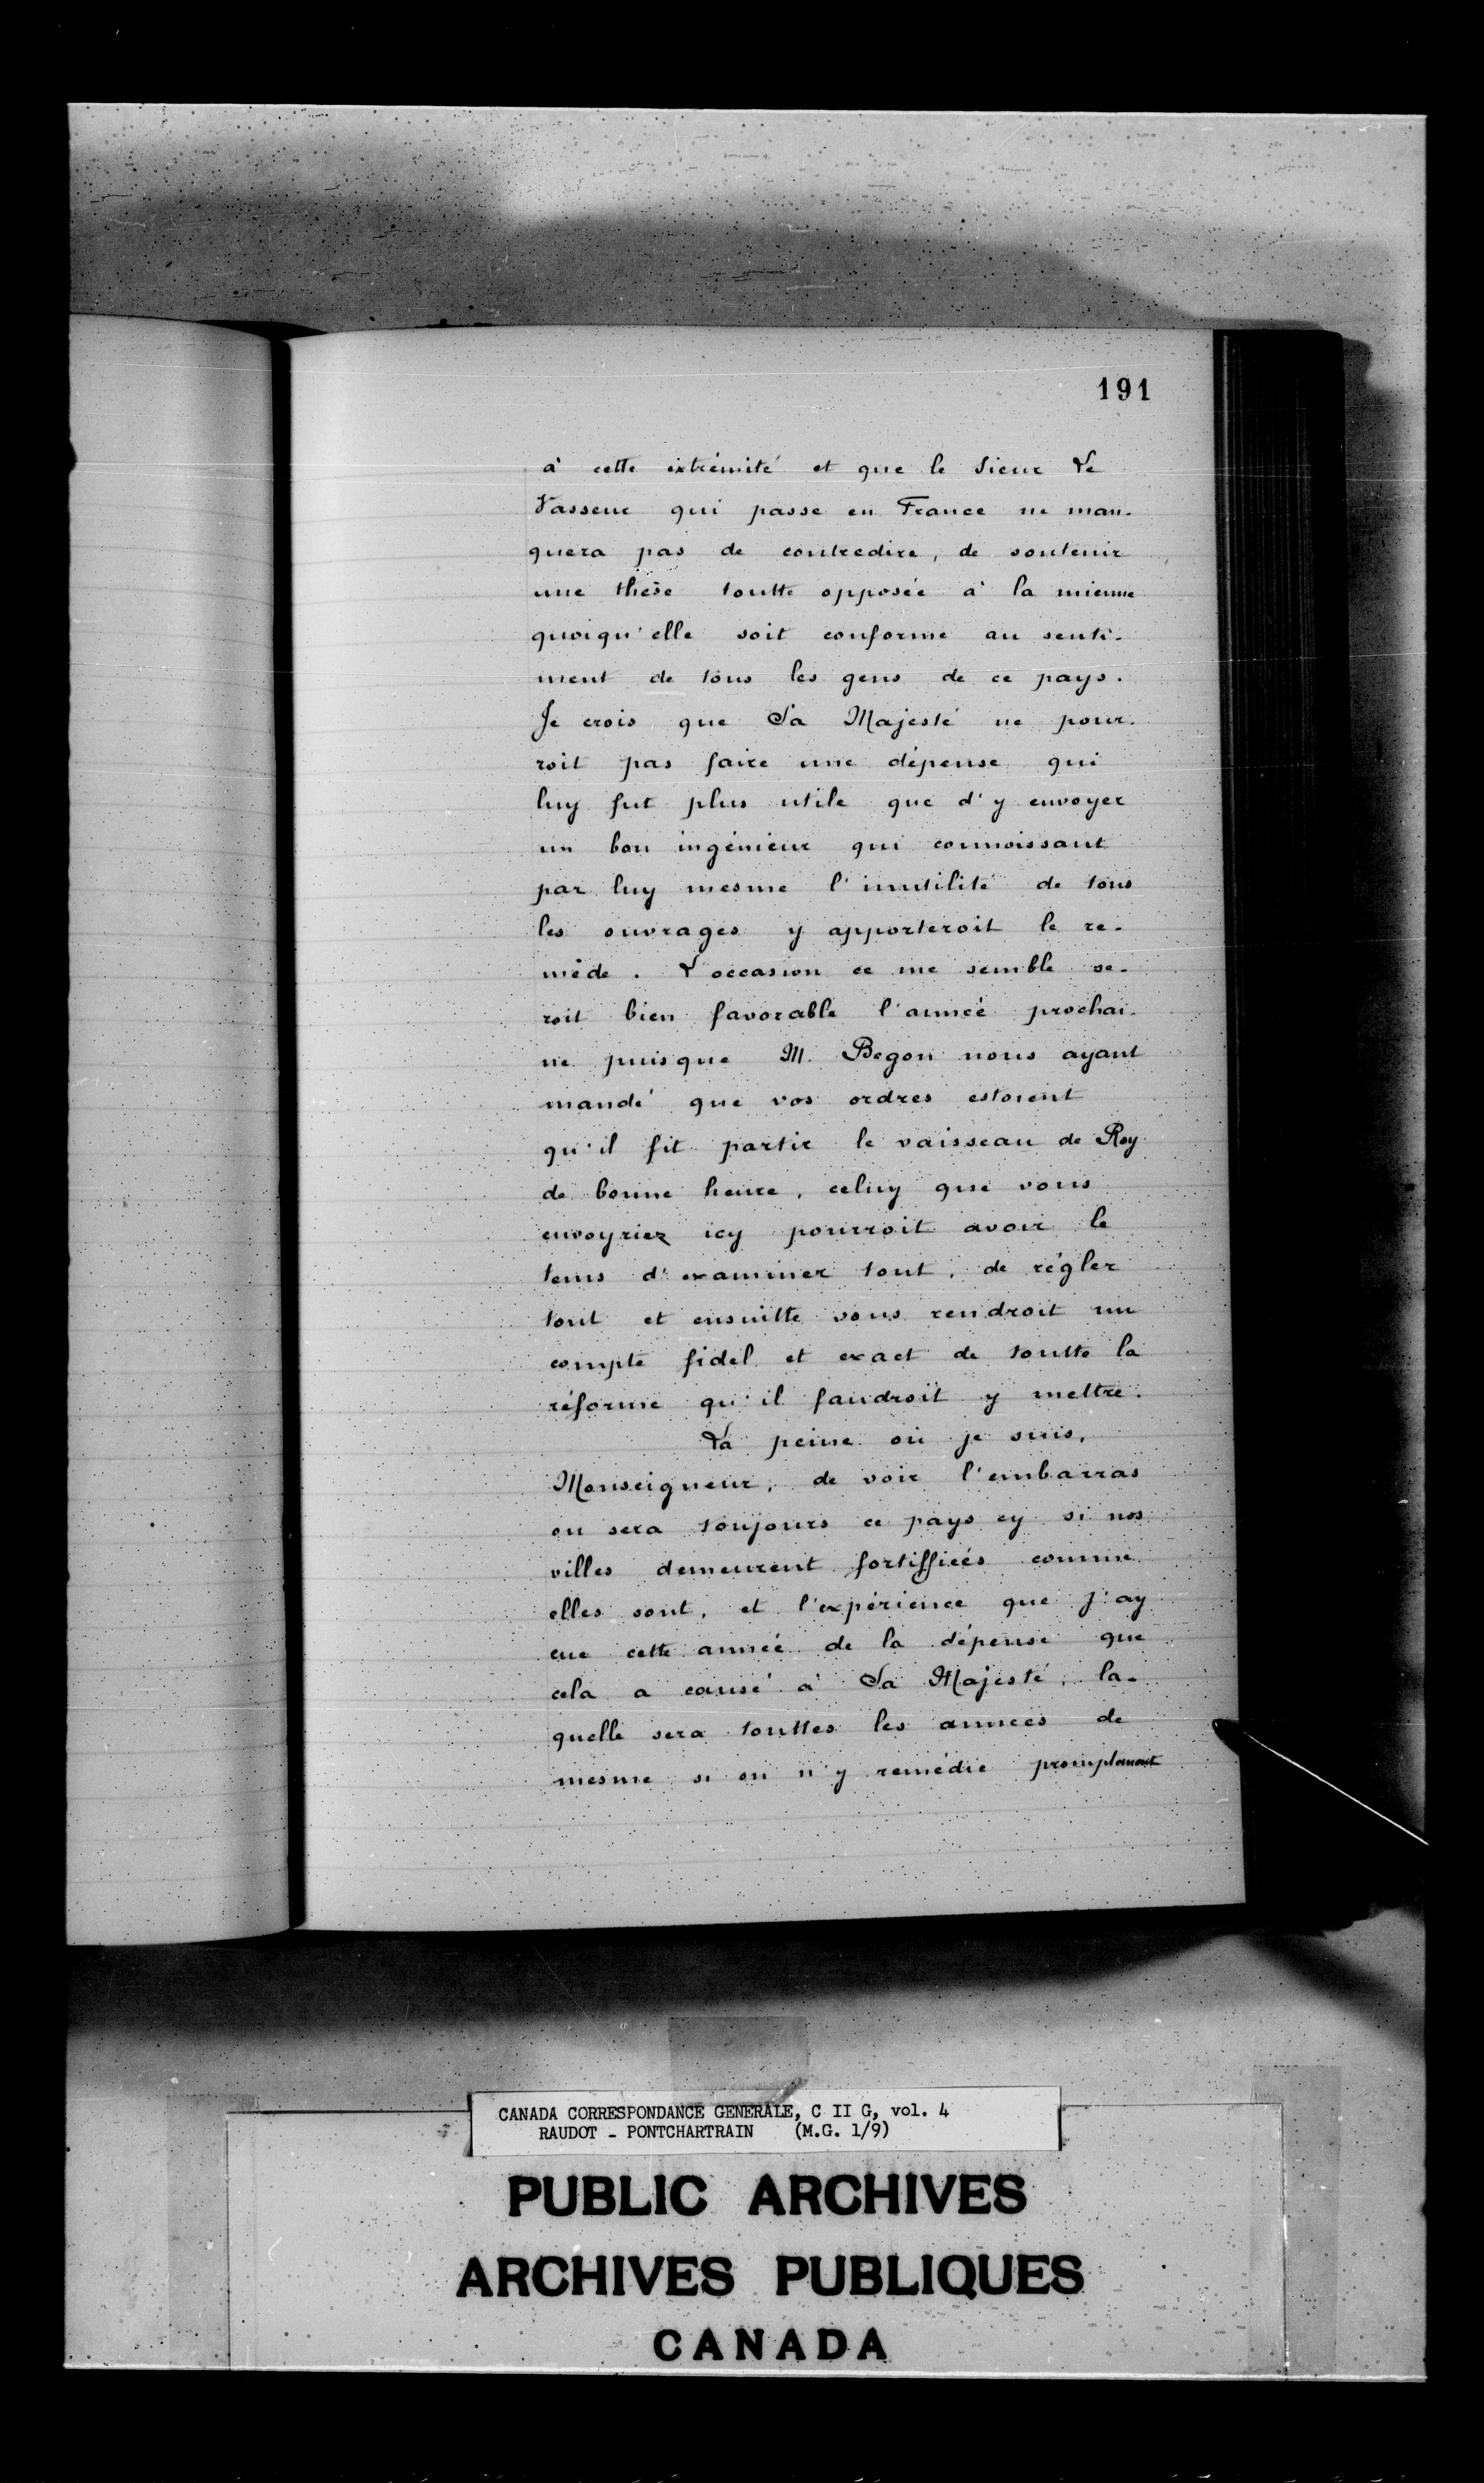 191
à cette extrémité et que le Sieur Le
Vasseur qui passe en France ne man-
quera pas de contredire, de soutenir
une thèse toutte opposée à la mienne
quoiqu'elle soit conforme au senti-
ment de tous les gens de ce pays.
Je crois que Sa Majesté ne pour-
roit pas faire une dépense qui
luy fut plus utile que d'y envoyer
un bon ingénieur qui connoissant
par luy mesme l'inutilité de tous
les ouvrages y apporteroit le re-
mède. L'occasion ce me semble se-
roit bien favorable l'année prochai-
ne puisque M. Begon nous ayant
mandé que vos ordres estoient
qu'il fit partir le vaisseau de Roy
de bonne heure, celuy que vous
envoyriez icy pourroit avoir le
tems d'examiner tout, de régler
tout et ensuitte vous rendroit un
compte fidel et exact de toutte la
réforme qu'il faudroit y mettre.
La peine où je suis,
Monseigneur, de voir l'embarras
ou sera toujours ce pays cy si nos
villes demeurent fortiffiées comme
elles sont, et l'expérience que j'ay
eue cette année de la dépense que
cela a causé à Sa Majesté, la-
quelle sera touttes les années de
mesme si on n'y remédie promptement
CANADA CORRESPONDANCE GENERALE, C II G, vol. 4
RAUDOT - PONTCHARTRAIN (M.G. 1/9)
PUBLIC ARCHIVES
ARCHIVES PUBLIQUES
CANADA